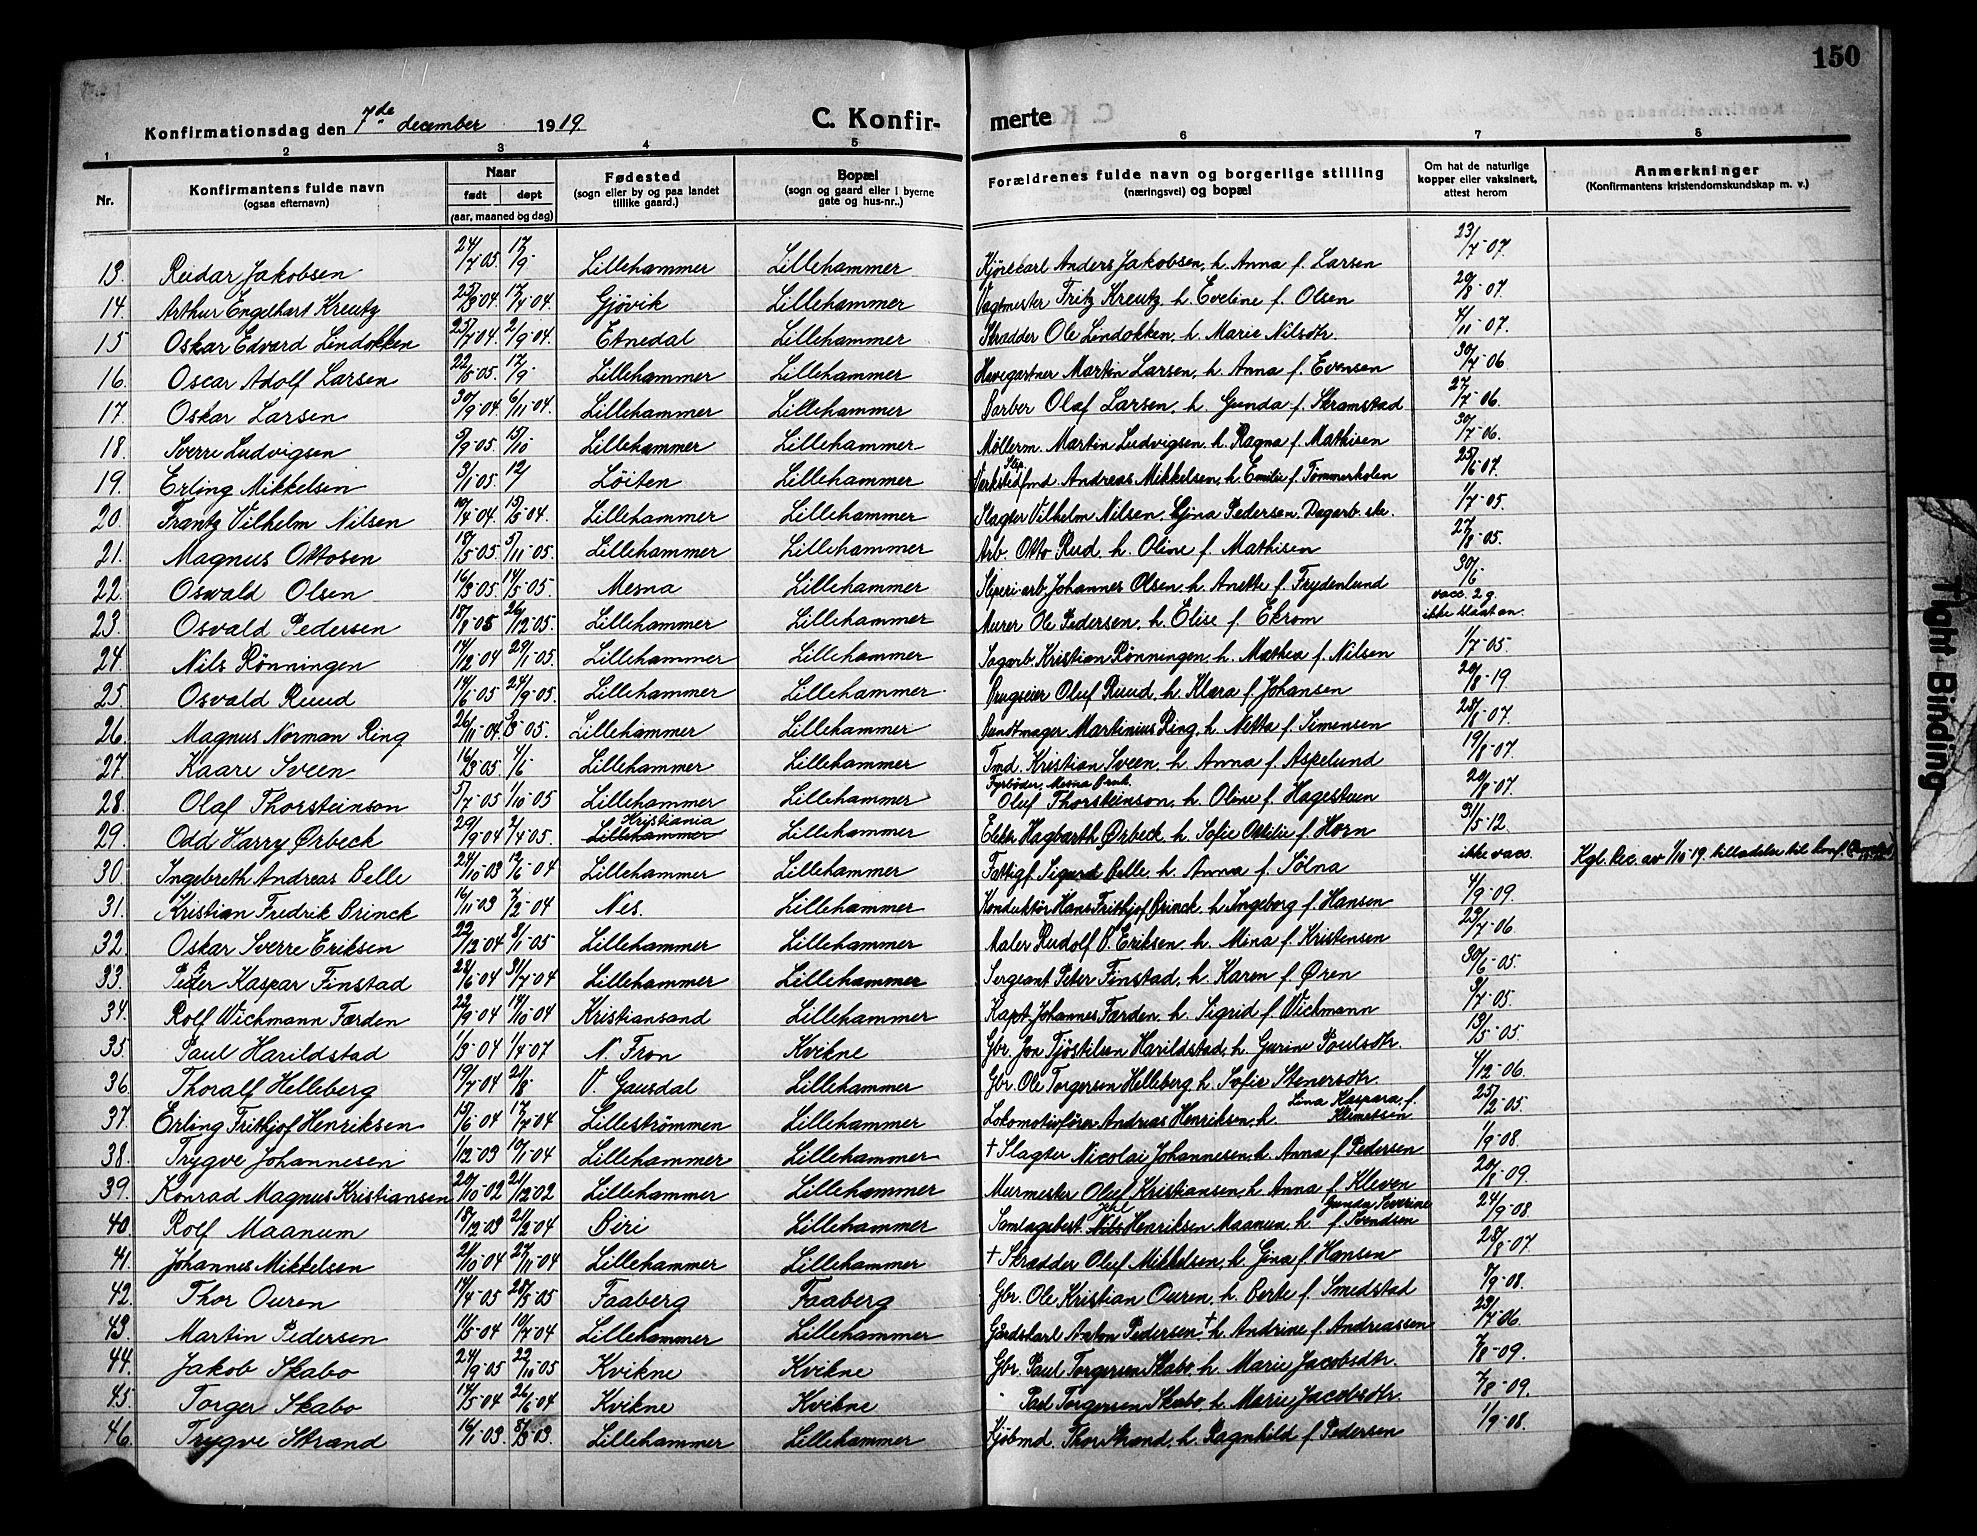 150
Konfirmationsdag den 7de december 1919 C. Konfir- merte
1 2 3 4 5 6 7 8
Nr. Konfirmantens fulde navn (ogsaa efternavn) Naar født døpt (aar, maaned og dag) Fødested (sogn eller by og paa landet tillike gaard.) Bopæl (sogn og gaard eller i byerne gate og hus-nr..) Forældrenes fulde navn og borgerlige stilling (næringsvei) og bopæl Om hat de naturlige kopper eller vaksinert, attest herom Anmerkninger (Konfirmantens kristendomskundskap m. v.)
13. Reidar Jakobsen 24/7 05. 17/9 Lillehammer Lillehammer Kjørekarl Anders Jakobsen, h. Anna f. Larsen 23/7-07.
14. Arthur Engelhart Kreutz 04. 17/4 04. Gjøvik Lillehammer Vagtmester Fritz Kreutz, h. Eveline f. Olsen 20/8-07.
15 Oskar Edvard Lindokken 25/7 04. 2/9 04. Etnedal Lillehammer Skrædder Ole Lindokken, h. Marie Nilsdtr. 4/11-07.
16. Oscar Adolf Larsen 05. 17/9 Lillehammer Lillehammer Havegartner Martin Larsen, h. Anna f. Evensen 30/7-06
17. Oskar Larsen 30/9 04. 6/11 04. Lillehammer Lillehammer Barber Olaf Larsen, h. Gunda f. Skramstad 27/7-06.
18. Sverre Ludvigsen 5/9 05. 15/10 Lillehammer Lillehammer Møllerm. Martin Ludvigsen, h. Ragna f. Mathisen 30/7-06.
19. Erling Mikkelsen 3/1 05. Løiten Lillehammer Andreas Mikkelsen, h. Emilie f. Tømmerholen 25/6 07.
20. Frantz Vilhelm Nilsen 10/4 04. 15/5 04. Lillehammer Lillehammer Slagter Vilhelm Nilsen, Gina Pedersen. Dagarb. ske. 1/7-05.
21. Magnus Ottosen 18/5 05 5/11 05. Lillehammer Lillehammer Arb. Otto Rud, h. Oline f. Mathisen 27/8-05.
22. Oswald Olsen 16/3 05. 14/5 05. Mesna Lillehammer Sliperi-arb. Johannes Olsen, h. Anette f. Frydenlund 30/6
23. Osvald Pedersen 18/8 05 26/12 05. Lillehammer Lillehammer Murer Ole Pedersen, h. Elise f. Ekrom vacc. 2 g. ikke slaat an.
24. Nils Rønningen 14/12 04 29/1 05. Lillehammer Lillehammer Sagarb. Kristian Rønningen, h. Mathea f. Nilsen 1/7-05.
25. Osvald Ruud 14/6 05 24/9 05. Lillehammer Lillehammer Brugseier Oluf Ruud, h. Klara f. Johansen 20/8-19.
26. Magnus Norman Ring 26/11 04. 05. Lillehammer Lillehammer Bundtmager Martinius Ring, h. Netta f. Simensen 28/8-07.
27. Kaare Sveen 16/3 05. 4/6 Lillehammer Lillehammer Tmd. Kristian Sveen, h. Anna f. Aspelund 19/8-07.
28. Olaf Thorsteinson 5/7 05 1/10 05 Lillehammer Lillehammer Fyrbøder, Mesna Bruk. Oluf Thorsteinson, h. Oline f. Hagesteen 20/8-07.
29. Odd Harry Ørbeck 29/9 04 2/4 05. Lillehammer Kristiania Lillehammer Elektr. Hagbarth Ørbeck, h. Sofie Ottilie f. Horn 31/5-12.
30 Ingebreth Andreas Belle 24/10 03 12/6 04 Lillehammer Lillehammer Fattigf. Sigurd Belle, h. Anna f. Solna ikke vacc. Kgl. Res. av 1/10-19. tilladelse til konf.
31. Kristian Fredrik Brinck 16/11 03 7/2 04 Nes. Lillehammer Konduktør Hans Frithjof Brinck, h. Ingeborg f. Hansen 4/9-09.
32. Oskar Sverre Eriksen 22/12 04 8/1 05 Lillehammer Lillehammer Maler Rudolf B. Eriksen, h. Mina f. Kristensen 23/7-06.
33. Peter Kaspar Finstad 28/6 04 31/7 04 Lillehammer Lillehammer Sergeant Peter Finstad, h. Karen f. Øren 30/6-05.
34. Rolf Wichmann Færden 22/9 04 19/10 04 Kristiansand Lillehammer Kapt. Johannes Færden, h. Sigrid f. Wichmann 9/7-05.
35. Paul Harildstad 1/3 04 1/4 07 N. Fron Kvikne Gbr. Jon Tjøstilsen Harildstad, h. Gurine Poulsdtr. 13/5-05.
36. Thoralf Helleberg 19/7 04 21/8 V. Gausdal Lillehammer Gbr. Ole Torgersen Helleberg, h. Sofie Stenersdtr. 4/12-06.
37. Erling Frithjof Henriksen 15/6 04 17/7 04 Lillestrømmen Lillehammer Lokomotivfører Andreas Henriksen, h. Lina Kaspara f. Klemetsen 25/2-05.
38. Trygve Johannesen 1/12 03 10/1 04 Lillehammer Lillehammer † Slagter Nicolai Johannesen, h. Anna f. Pedersen 1/9-08.
39. Konrad Magnus Kristiansen 20/10 02 21/12 02 Lillehammer Lillehammer Murmester Oluf Kristiansen, h. Anna f. Kleven 20/8-09.
40. Rolf Maanum 18/12 03 21/2 04 Biri Lillehammer Samlagsbest. Nils Henriksen Maanum, h. Gunda Severine f. Svendsen 24/9-08.
41. Johannes Mikkelsen 21/10 04 27/11 04 Lillehammer Lillehammer † Skrædder Oluf Mikkelsen, h. Gina f. Hansen 28/8-07.
42. Thor Ouren 14/4 05 28/5 05 Faaberg Faaberg Gbr. Ole Kristian Ouren, h. Berte f. Smedstad 7/9-08.
43. Martin Pedersen 11/5 04 10/7 04 Lillehammer Lillehammer Gårdskarl Anton Pedersen, † h. Andrine f. Andreassen 23/7-06
44. Jakob Skabo 24/9 05 22/10 05 Kvikne Kvikne Gbr. Paul Torgersen Skabo, h. Marie Jacobsdtr. 7/8-09.
45. Torger Skabo 14/5 04 26/6 04 Kvikne Kvikne " Paul Torgersen Skabo, h. Marie Jacobsdtr. 7/8-09.
46. Trygve Strand 16/1 03 8/3 03. Lillehammer Lillehammer Kjøbmd. Thor Strand, h. Ragnhild f. Pedersen 1/9-08.
Tight Binding